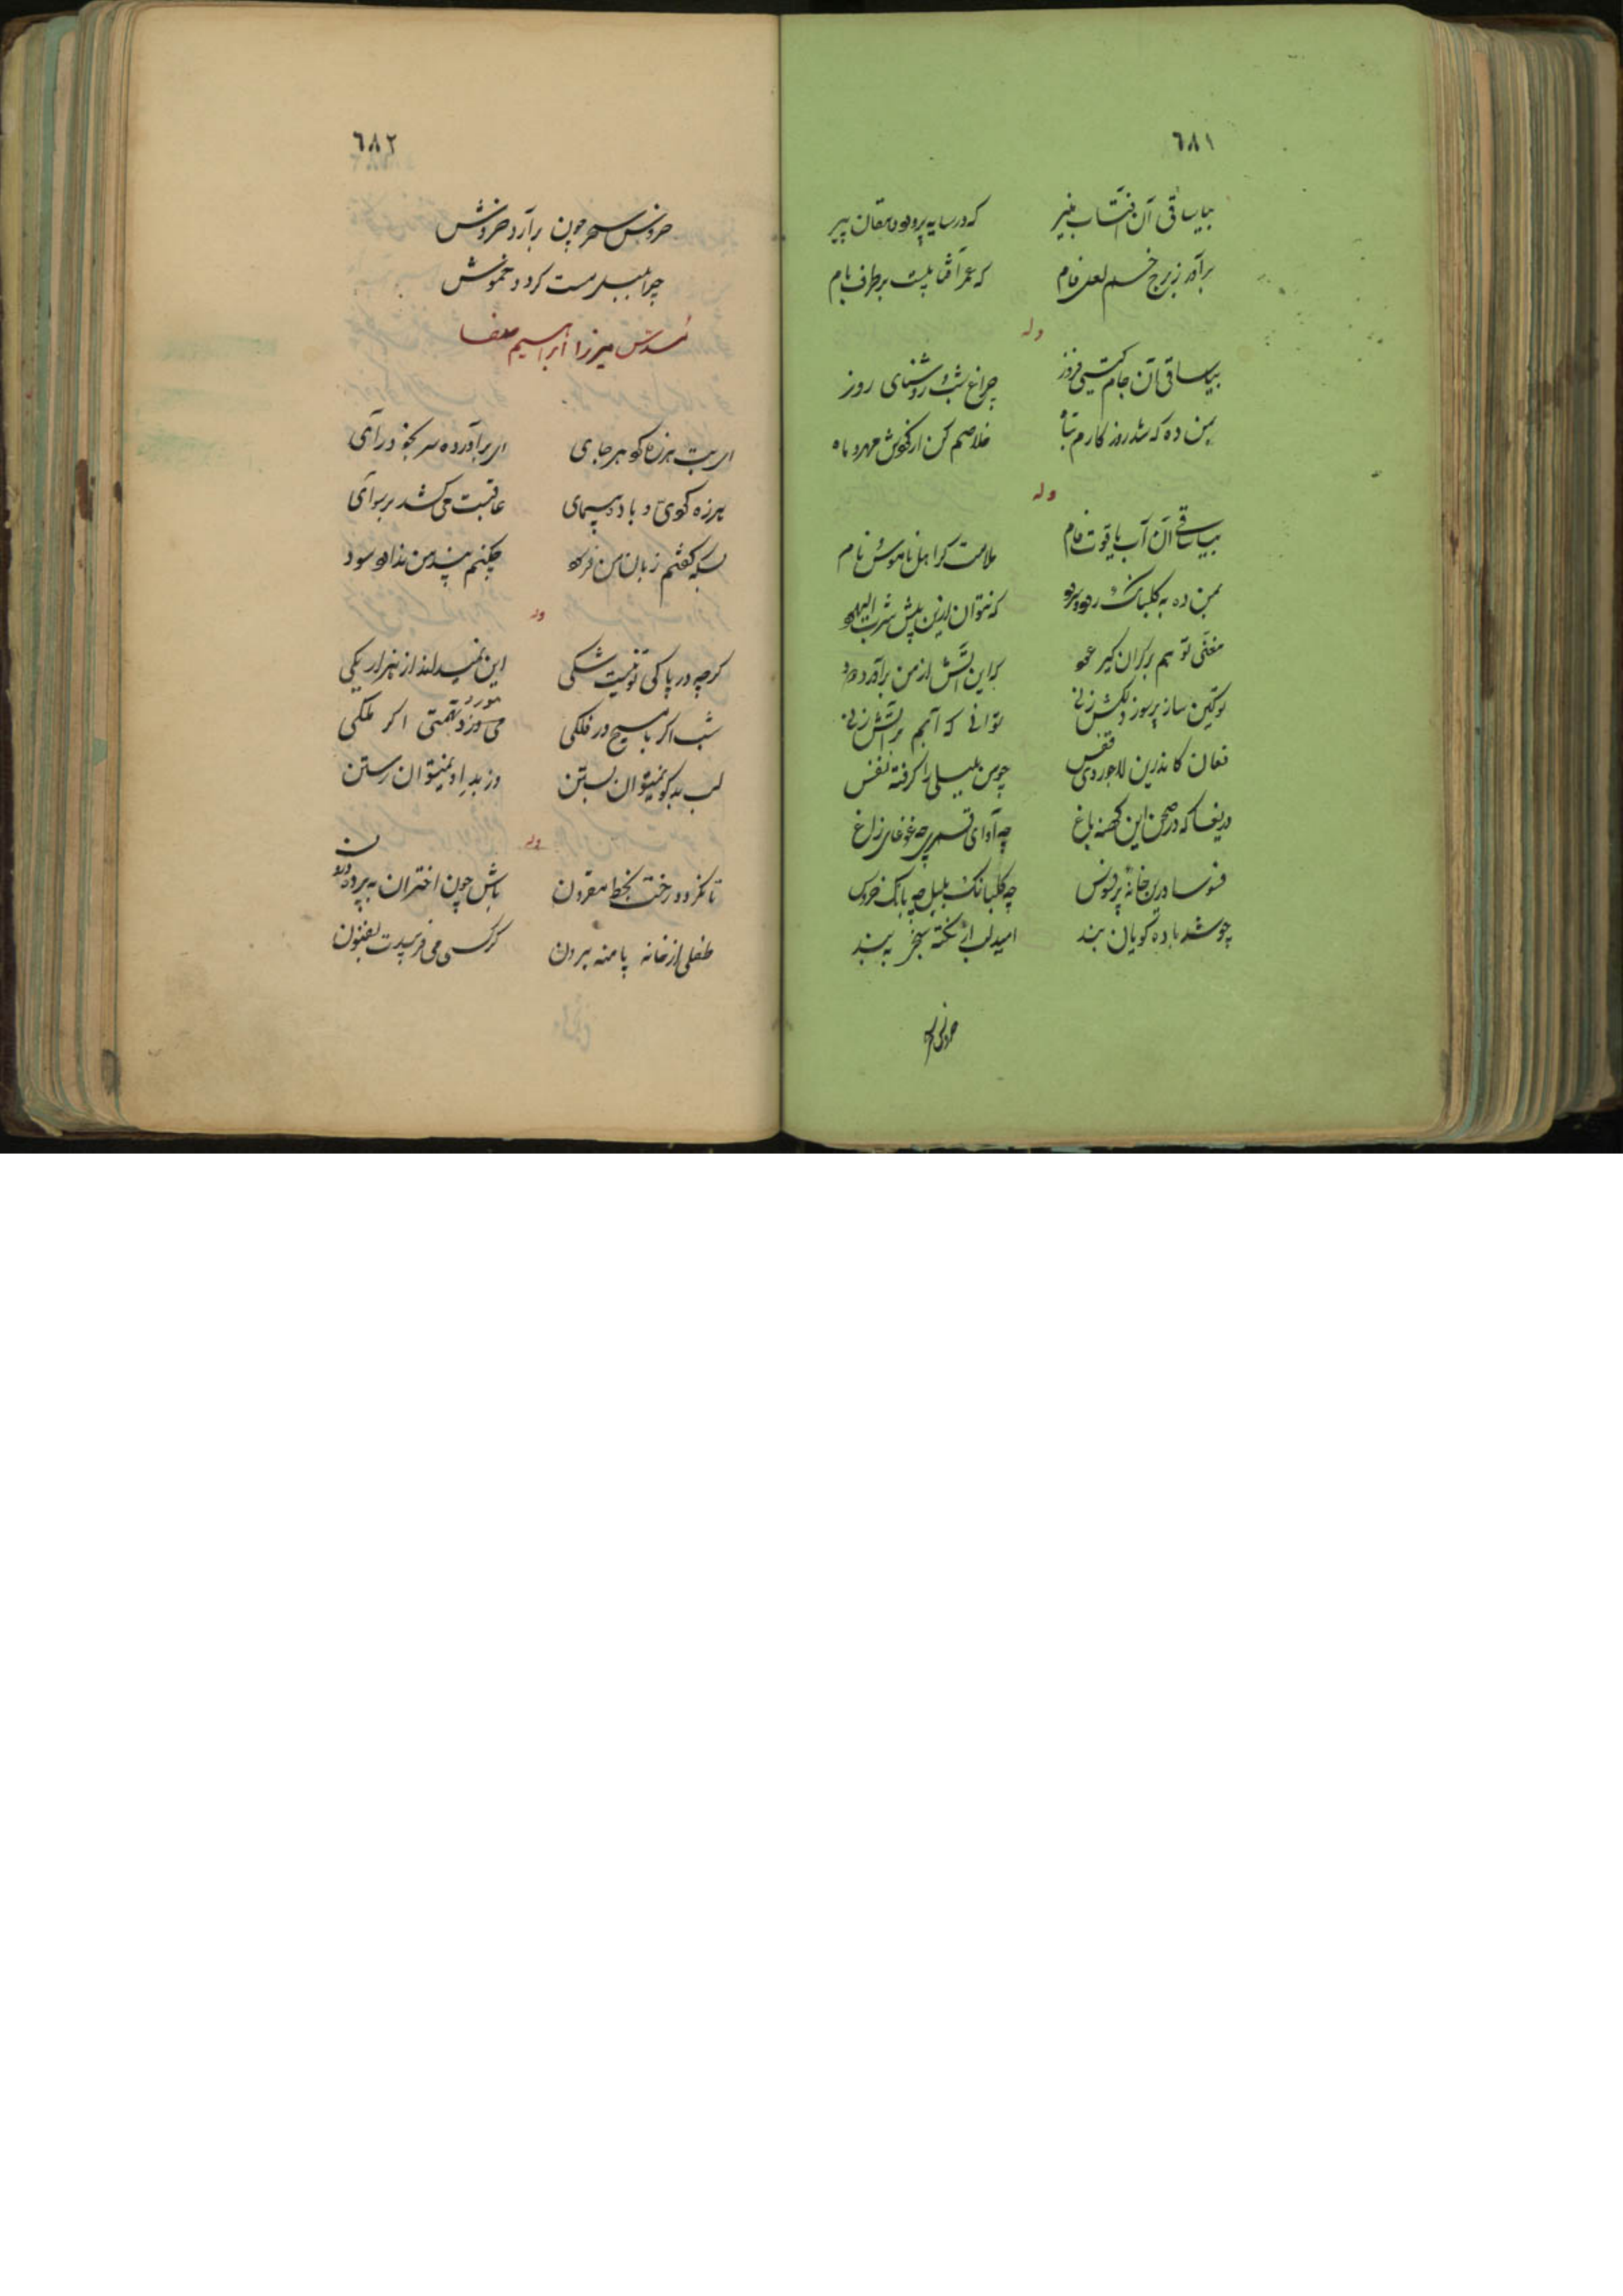 ٦٨١
بیا ساقی آن آفتاب منیر که در سایه پرورد دهقان پیر
برآور ز برج خم لعل فام که عمر آفتابیست بر طرف بام
وله
بیا ساقی آن جام گیتی فروز چراغ شب و روشنای روز
بمن ده که شد روزکارم تباه خلاصم کن از کوش مهر و ماه
وله
بیا ساقی آن آب یاقوت فام ملامت کر اهل ناموس و نام
بمن ده به کلبانک که نتوان ازین پیش شرب الیهود
مغنی تو هم برکران کیر عود که این آتش از من برآورد دود
تو کین ساز پرسوز دلکش زنی توانی که آبم بر آتش زنی
فغان کاندرین لاجوردی قفس چو من بلبلی را کرفته نفس
دریغا که در صحن این کهنه باغ چه آوای قمری چه غوغای زاغ
فسوسا درین خانه پرفسوس چه کلبانک بلبل چه بانک خروس
چو شد باده کویان بند امید لب از نکته سنجی به بند
خروس سحر
٦٨٢
خروس سحر چون برآرد خروش
چرا بلبل مست کردد خموش
مسدس میرزا ابراهیم صفا
ای بت هرزه کو هر جای ای برآورده سر بخود رآی
هرزه کوی و باده پیمای عاقبت می کشد برسوآی
بسکه کفتم زبان من فرسود چکنم پند من ندارد سود
وله
کرچه در پاکی تو نیست شکی این نمیداند از هزار یکی
شب اکر با مسیح در فلکی می تهمتی اکر ملکی
لب بدکو نمیتوان بستن وز بد او نمیتوان رستن
وله
تا نکردد رخت بخط مقرون باش چون اختران به پرده درون
طفلی از خانه پا منه بیرون کرکسی می فریبدت بفنون